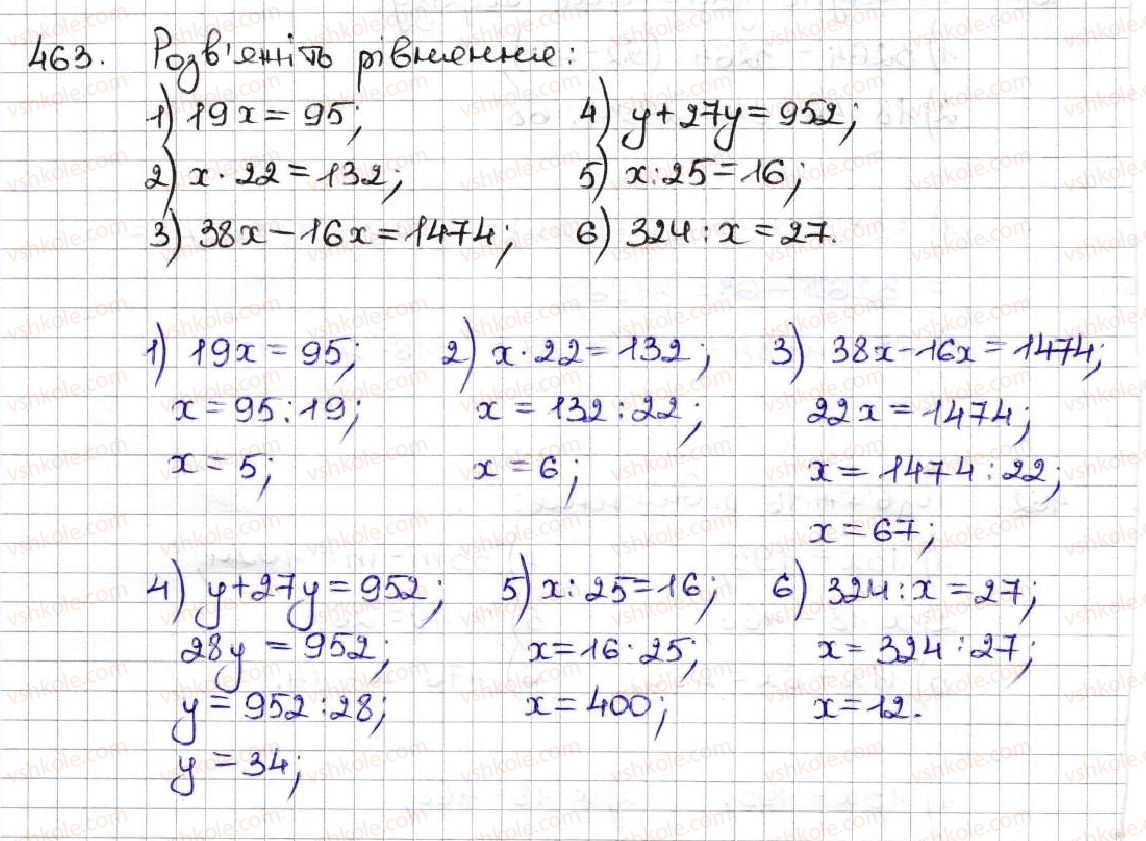 463. Розв'яжіть рівняння:
1) 19x = 95; 4) y + 27y = 952;
2) x · 22 = 132; 5) x : 25 = 16;
3) 38x - 16x = 1474; 6) 324 : x = 27.
1) 19x = 95; 2) x · 22 = 132; 3) 38x - 16x = 1474;
x = 95 : 19; x = 132 : 22; 22x = 1474;
x = 5; x = 6; x = 1474 : 22;
x = 67;
4) y + 27y = 952; 5) x : 25 = 16; 6) 324 : x = 27;
28y = 952; x = 16 · 25; x = 324 : 27;
y = 952 : 28; x = 400; x = 12.
y = 34;
vshkole.com